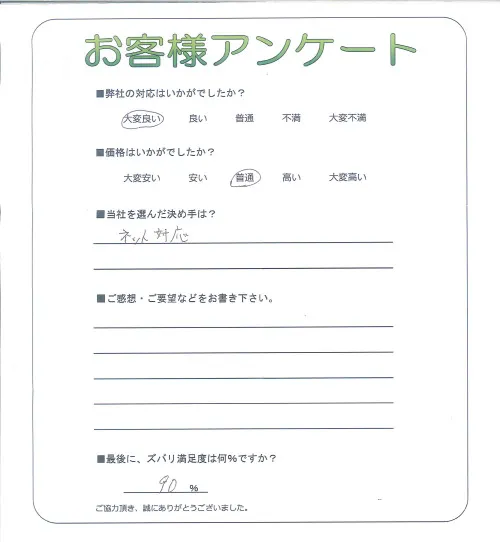 お客様アンケート
■弊社の対応はいかがでしたか？
大変良い 良い 普通 不満 大変不満
■価格はいかがでしたか？
大変安い 安い 普通 高い 大変高い
■当社を選んだ決め手は？
ネット対応
■ご感想・ご要望などをお書き下さい。
■最後に、ズバリ満足度は何％ですか？
90 ％
ご協力頂き、誠にありがとうございました。